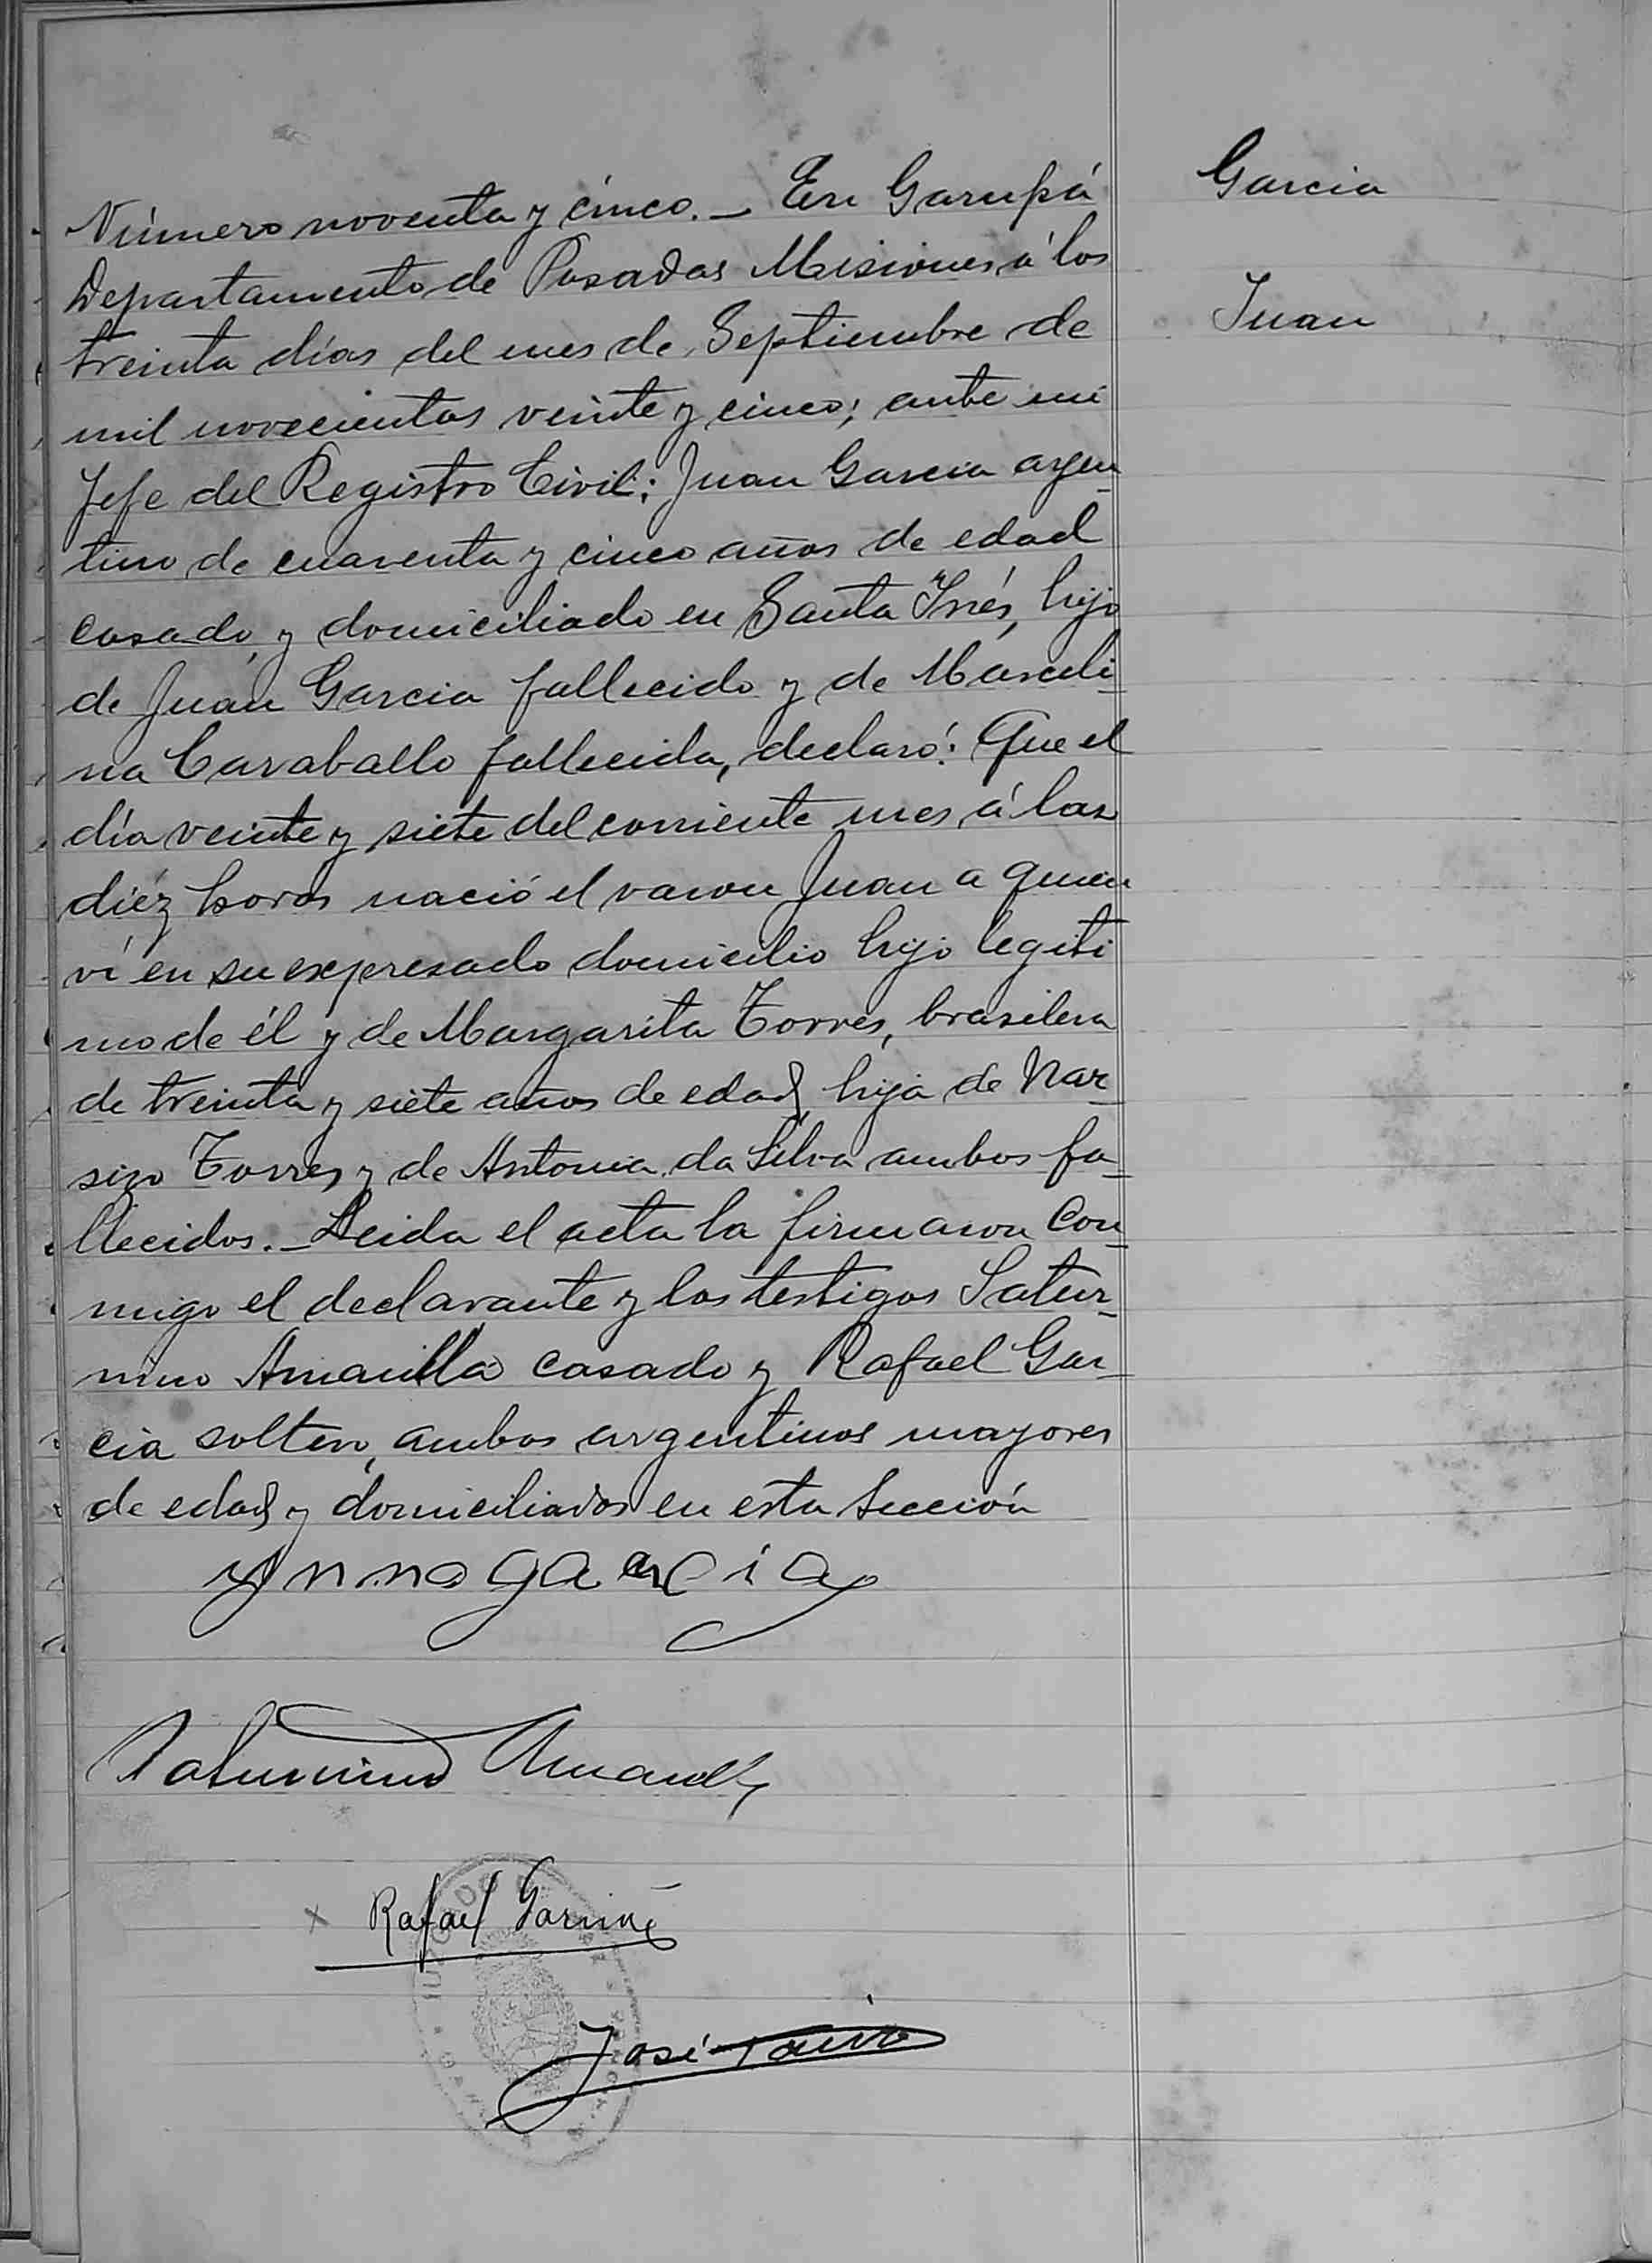 Garcia
Juan
Número noventa y cinco. — En Garupá
Departamento de Posadas Misiones á los
treinta días del mes de Septiembre de
mil novecientos veinte y cinco; ante mí
Jefe del Registro Civil: Juan Garcia argen-
tino de cuarenta y cinco años de edad
casado, y domiciliado en Santa Inés, hijo
de Juan Garcia fallecido y de Marceli-
na Caraballo fallecida, declaró: Que el
día veinte y siete del corriente mes á las
diéz horas nació el varon Juan a quien
ví en su expresado domicilio hijo legiti
mo de él y de Margarita Torres, brasilera
de treinta y siete años de edad, hija de Nar-
siso Torres y de Antonia da Silva ambos fa-
llecidos. — Leida el acta la firmaron con-
migo el declarante y los testigos Satur-
nino Amarilla casado y Rafael Gar-
cia soltero, ambos argentinos mayores
de edad y domiciliados en esta Sección
Saturnino Amarilla
x Rafael
José